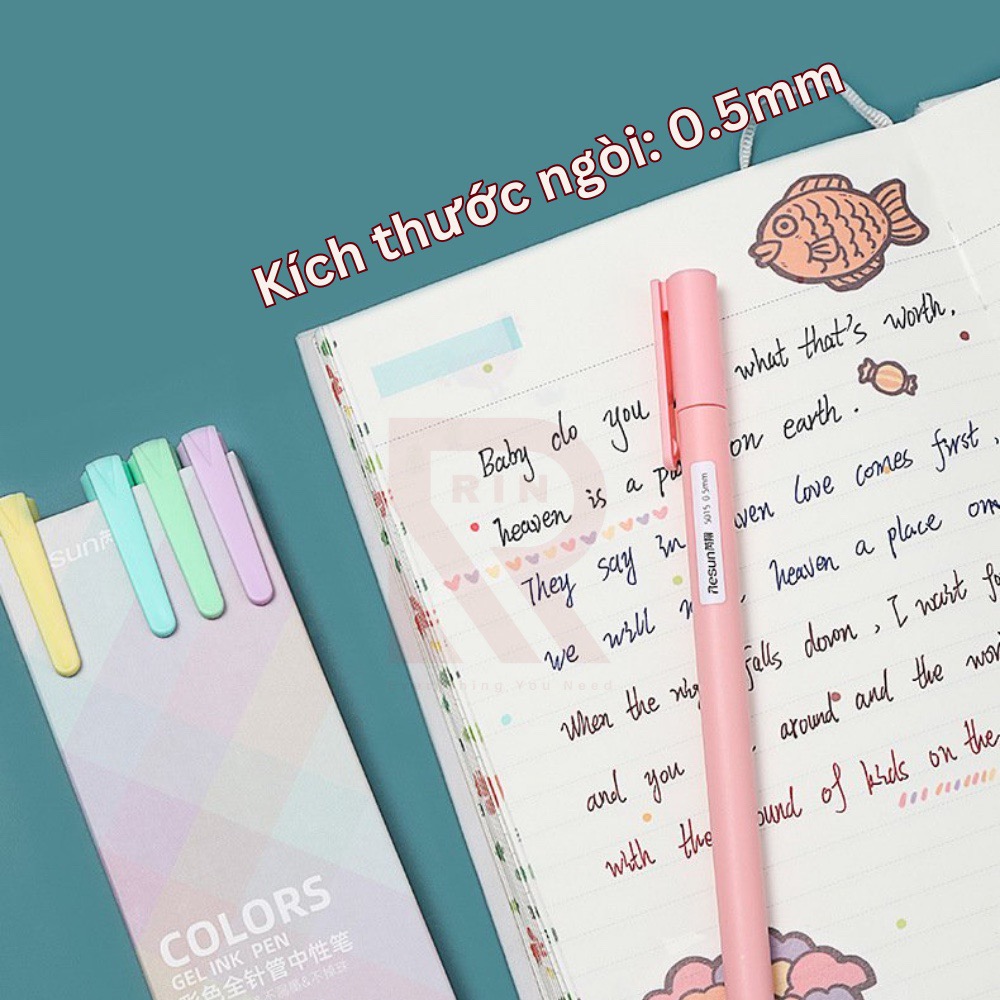 Kích thước ngòi: 0.5mm
Baby do you what that's worth.
heaven is a on earth.
They say in love comes first,
we will heaven a place
When the falls down, I want
and you around and the
with the ound of kids on the
Aesun 5015 0.5mm
RIN
sun
COLORS
GEL INK PEN
彩色全针管中性笔